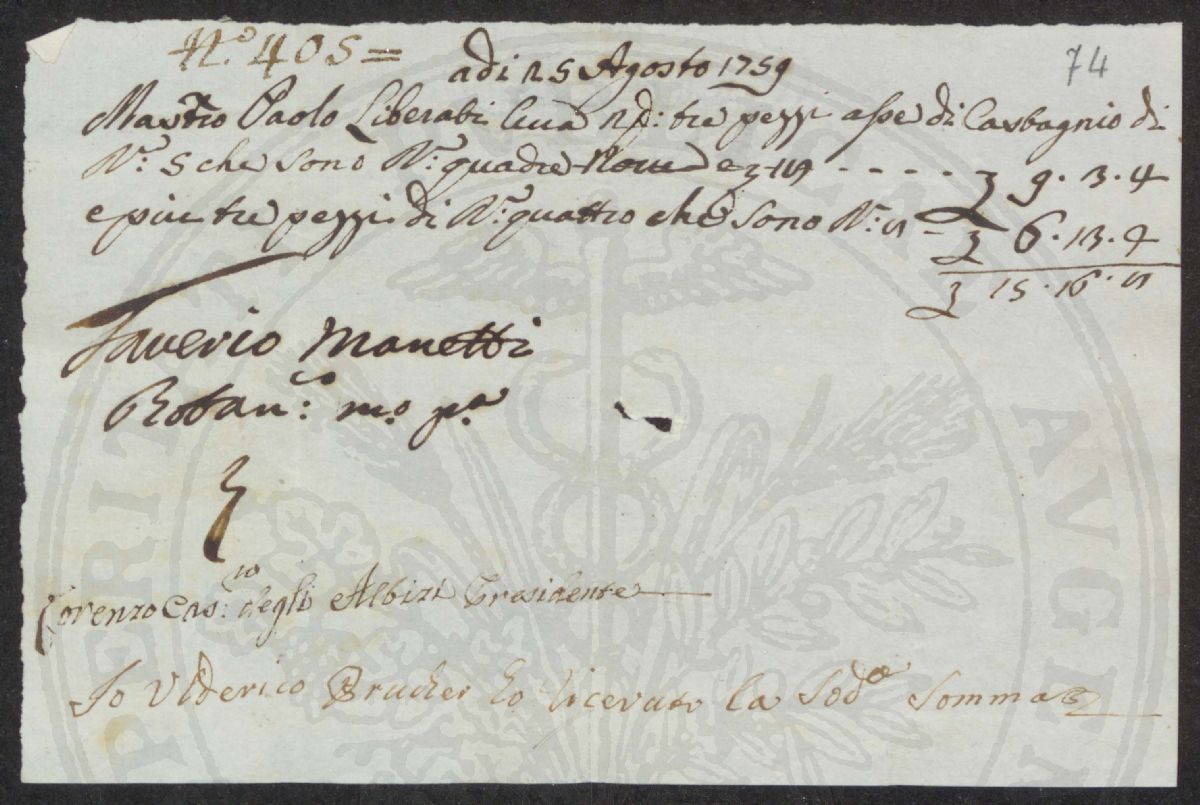 N.º 405 =
74
adi 25 Agosto 1759
Mastro Paolo Liberati tre pezzi asse di Castagnio di
B.ª 5 che sono B.ª quadre Nove e - - - - - 9.3.4
e piu tre pezzi di B.ª quattro che sono B.ª - 6.13.4
15.16.
Saverio Manetti
Botan:co m.o p.a
Lorenzo Cas:no degli Albizi Presidente
Io Ulderico Brucker ho ricevuto la Sod.a Somma